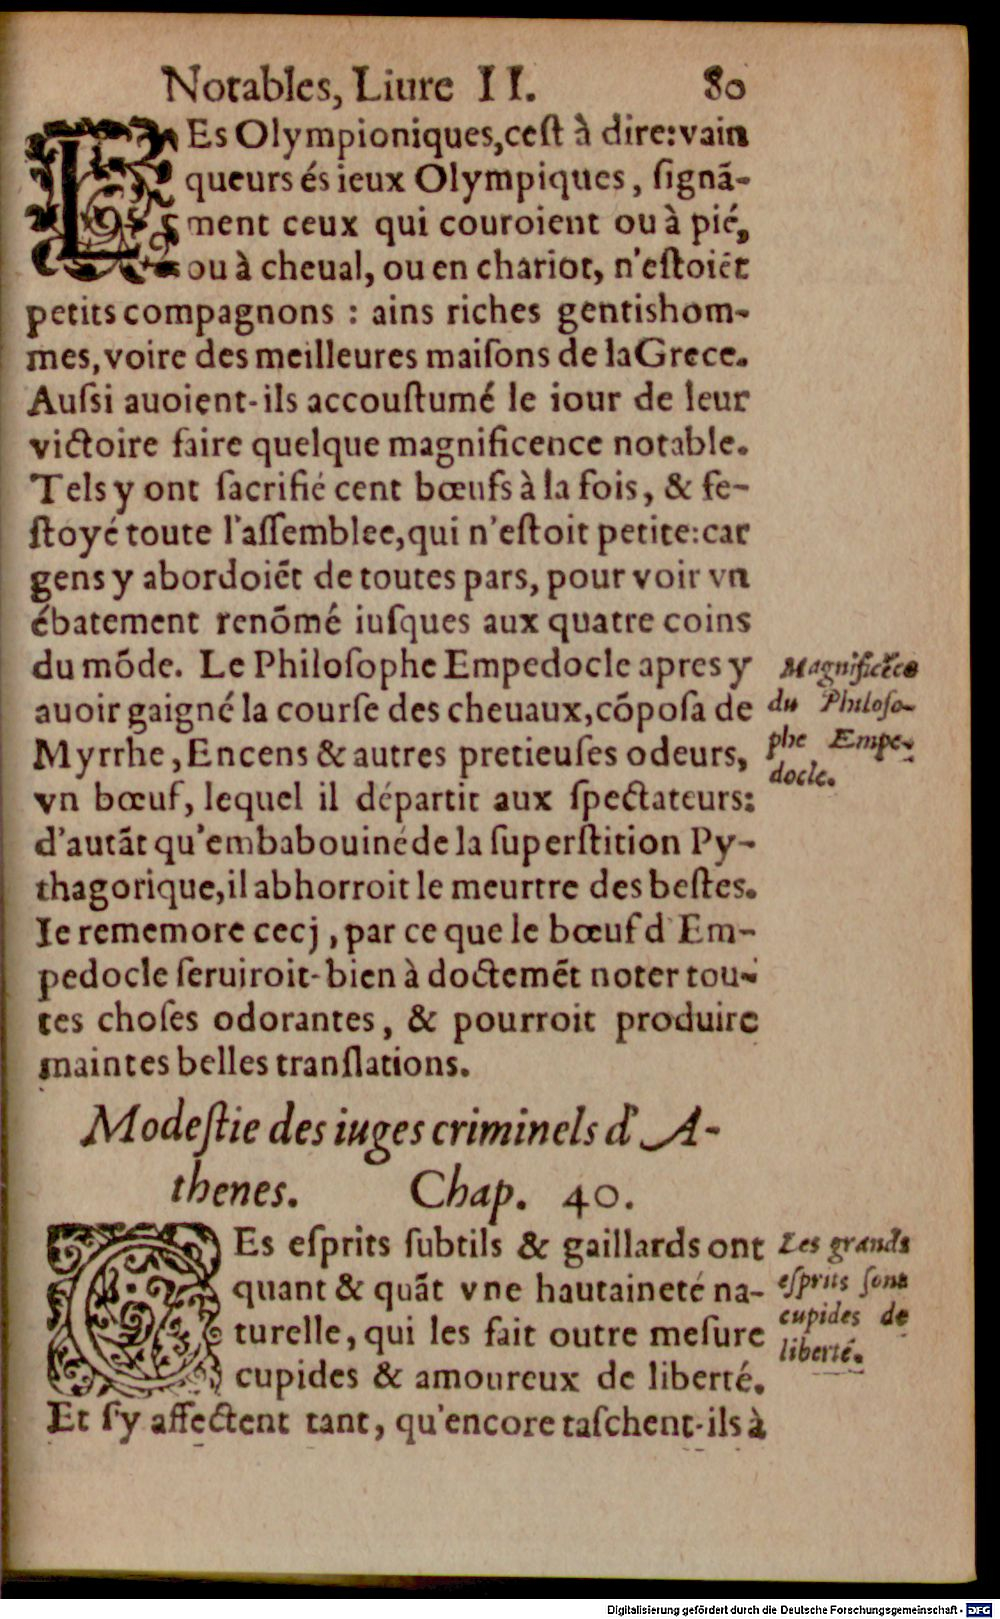 Notables, Liure II. 80
LEs Olympioniques,cest à dire:vain
queurs és ieux Olympiques, signã-
ment ceux qui couroient ou à pié,
ou à cheual, ou en chariot, n'estoiẽt
petits compagnons : ains riches gentishom-
mes, voire des meilleures maisons de la Grece.
Aussi auoient-ils accoustumé le iour de leur
victoire faire quelque magnificence notable.
Tels y ont sacrifié cent bœufs à la fois, & fe-
stoyé toute l'assemblee, qui n'estoit petite:car
gens y abordoiẽt de toutes pars, pour voir vn
ébatement renõmé iusques aux quatre coins
du mõde. Le Philosophe Empedocle apres y
auoir gaigné la course des cheuaux, cõposa de
Myrrhe, Encens & autres pretieuses odeurs,
vn bœuf, lequel il départit aux spectateurs:
d'autãt qu'embabouiné de la superstition Py-
thagorique, il abhorroit le meurtre des bestes.
Ie rememore cecj, par ce que le bœuf d'Em-
pedocle seruiroit-bien à doctemẽt noter tou-
tes choses odorantes, & pourroit produire
maintes belles translations.
Magnificẽce
du Philoso-
phe Empe-
docle.
Modestie des iuges criminels d'A-
thenes. Chap. 40.
CEs esprits subtils & gaillards ont
quant & quãt vne hautaineté na-
turelle, qui les fait outre mesure
cupides & amoureux de liberté.
Et s'y affectent tant, qu'encore taschent-ils à
Les grands
esprits sont
cupides de
liberté.
Digitalisierung gefördert durch die Deutsche Forschungsgemeinschaft - DFG